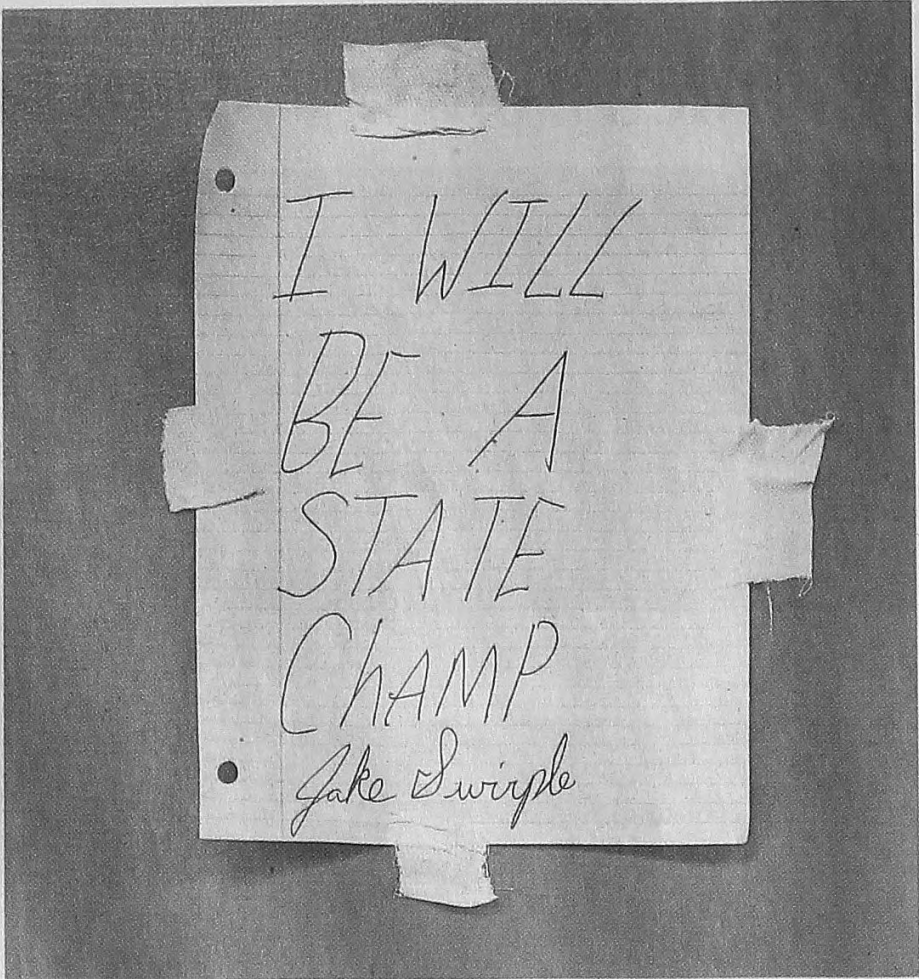 I WILL
BE A
STATE
ChAMP
Jake Swirple